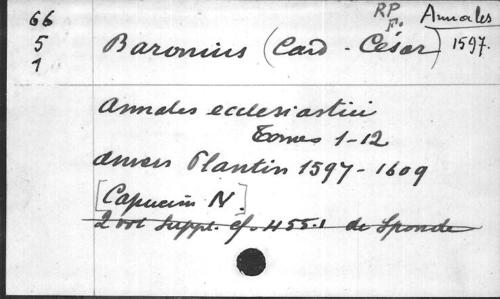 66
5
1
RP
F.
Annales
1597.
Baronius (Card - César)
Annales ecclesiastici
Tomes 1-12
Anvers Plantin 1597-1609
[Capucin N.]
2 vol Suppl. cf. 455.1 de Sponde